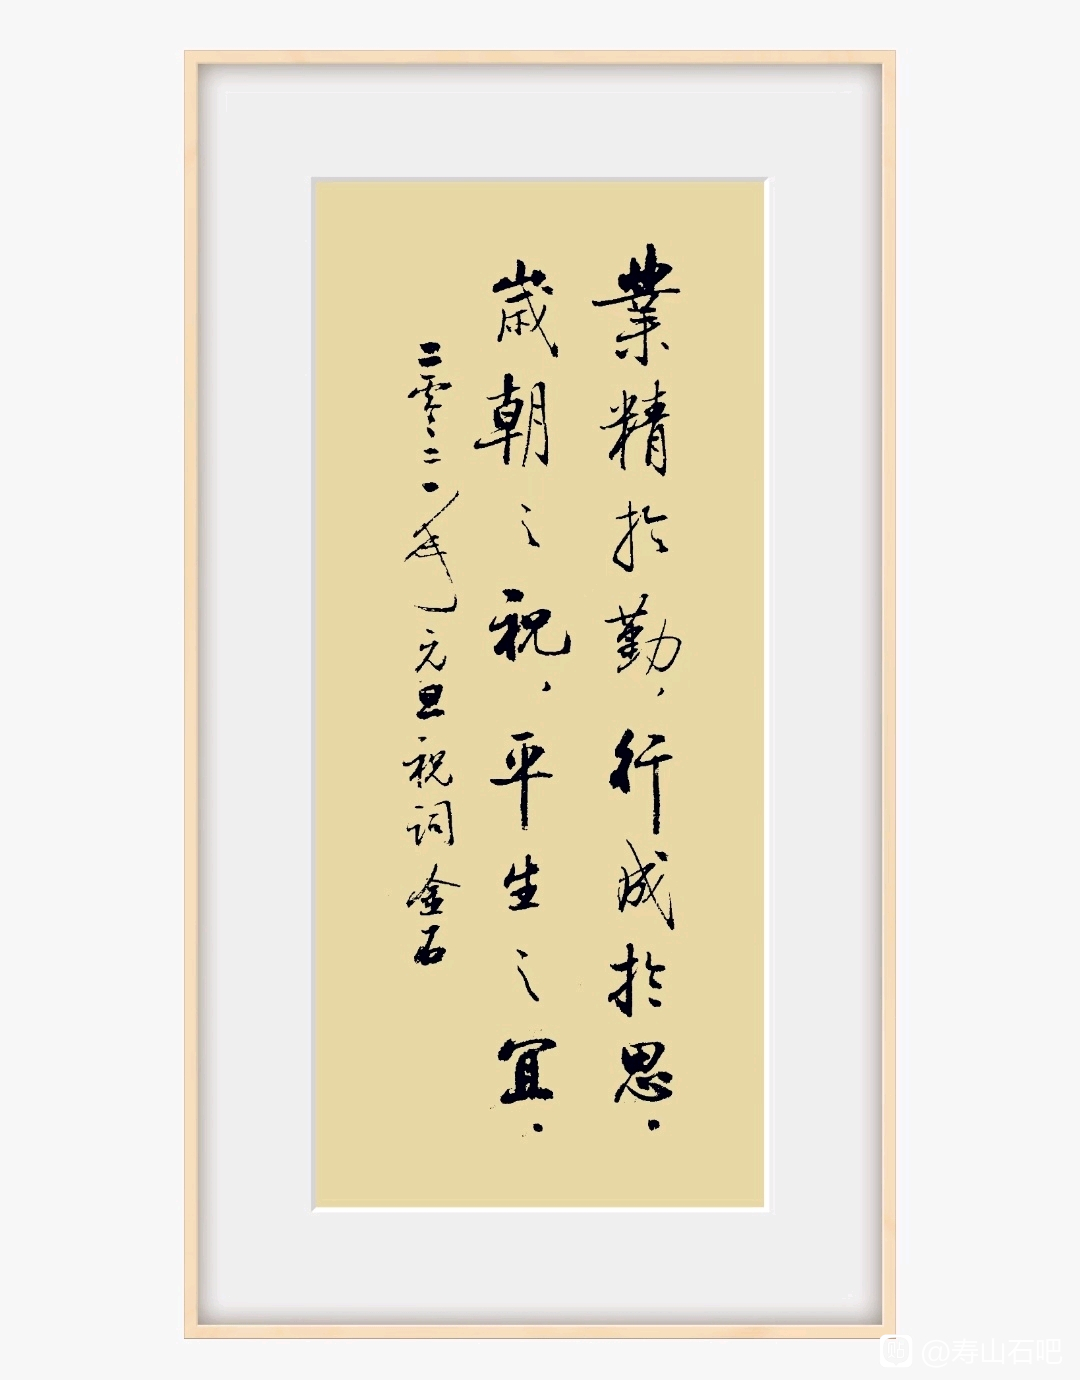 業精於勤，行成於思。
歲朝之祝，平生之宜。
二零二一年元旦祝词金石
贴 @寿山石吧